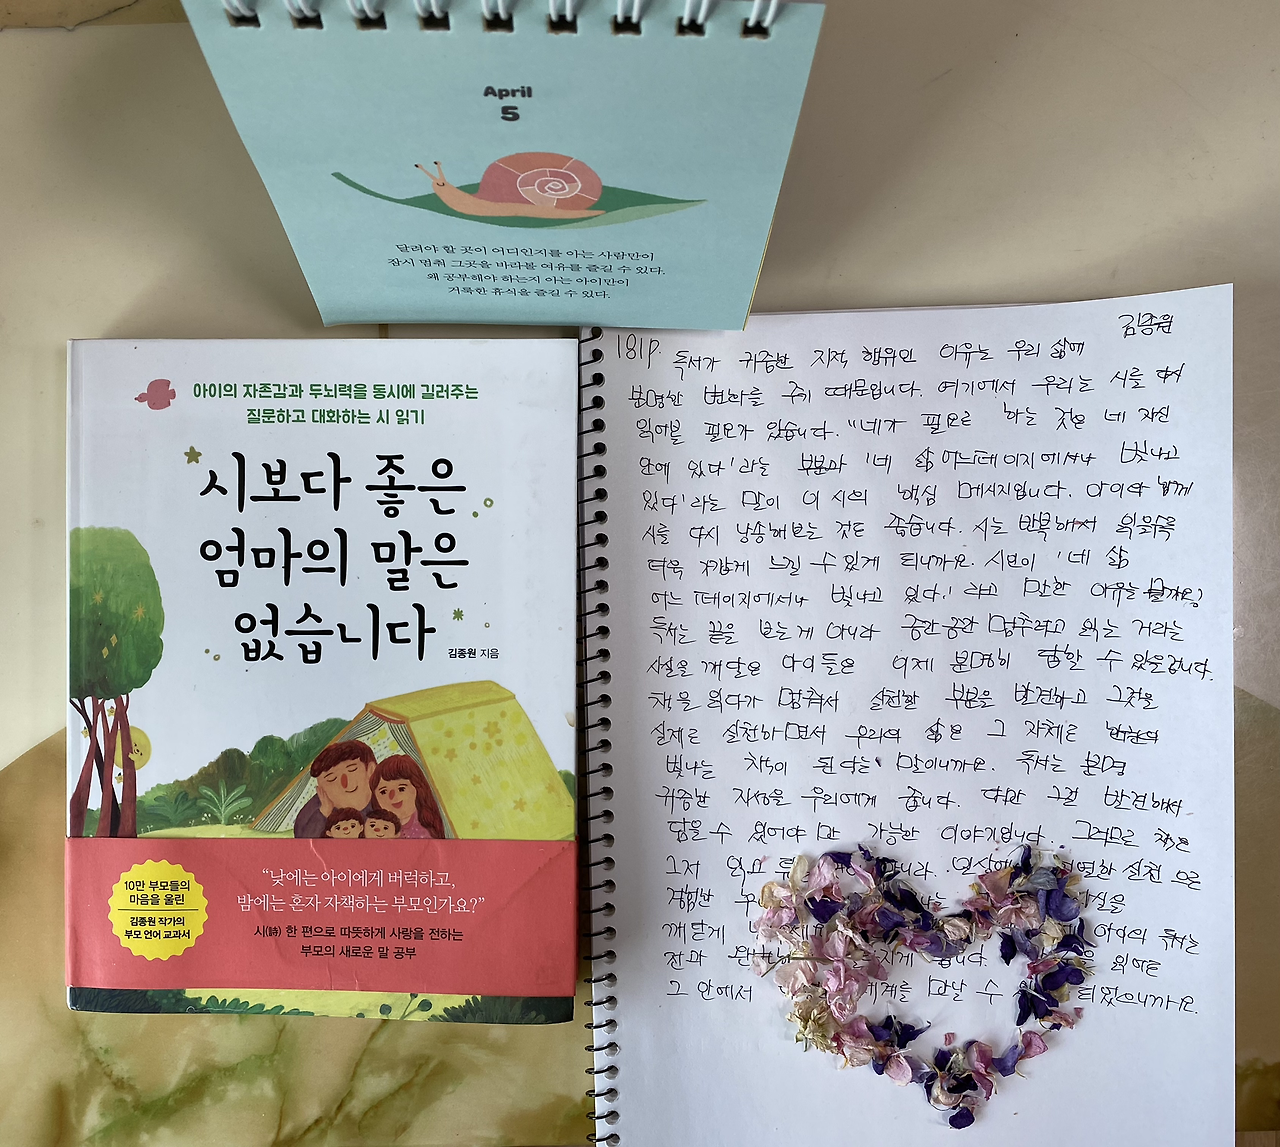 April
5
달려야 할 곳이 어디인지를 아는 사람만이
잠시 멈춰 그곳을 바라볼 여유를 즐길 수 있다.
왜 공부해야 하는지 아는 아이만이
거룩한 휴식을 즐길 수 있다.
아이의 자존감과 두뇌력을 동시에 길러주는
질문하고 대화하는 시 읽기
시보다 좋은
엄마의 말은
없습니다
김종원 지음
10만 부모들의
마음을 울린
김종원 작가의
부모 언어 교과서
“낮에는 아이에게 버럭하고,
밤에는 혼자 자책하는 부모인가요?”
시(詩) 한 편으로 따뜻하게 사랑을 전하는
부모의 새로운 말 공부
김종원
181p. 독서가 귀중한 지적 행위인 이유는 우리 삶에
분명한 변화를 주기 때문입니다. 여기에서 우리는 시를 다시
읽어볼 필요가 있습니다. “네가 필요로 하는 것은 네 자신
안에 있다'라는 부분과 '네 삶 어느 페이지에서나 빛나고
있다'라는 말이 이 시의 핵심 메시지입니다. 아이와 함께
시를 다시 낭송해보는 것도 좋습니다. 시는 반복해서 읽을수록
더욱 가깝게 느낄 수 있게 되니까요. 시인이 '네 삶
어느 페이지에서나 빛나고 있다.'라고 말한 이유는 뭘까요?
독서는 끝을 보는 게 아니라 중간중간 멈추려고 읽는 거라는
사실을 깨달은 아이들은 이제 분명히 답할 수 있을겁니다.
책을 읽다가 멈춰서 실천할 부분을 발견하고 그것을
실제로 실천하면서 우리의 삶은 그 자체로
빛나는 책이 된다는 말이니까요. 독서는 분명
귀중한 지성을 우리에게 줍니다. 다만 그걸 발견해서
담을 수 있어야만 가능한 이야기입니다. 그러므로 책은
그저 읽고 아니라 일상에 실천으로
경험한
깨닫게 아이의 독서는
전과
그 안에서 세계를 만날 수 되었으니까요.